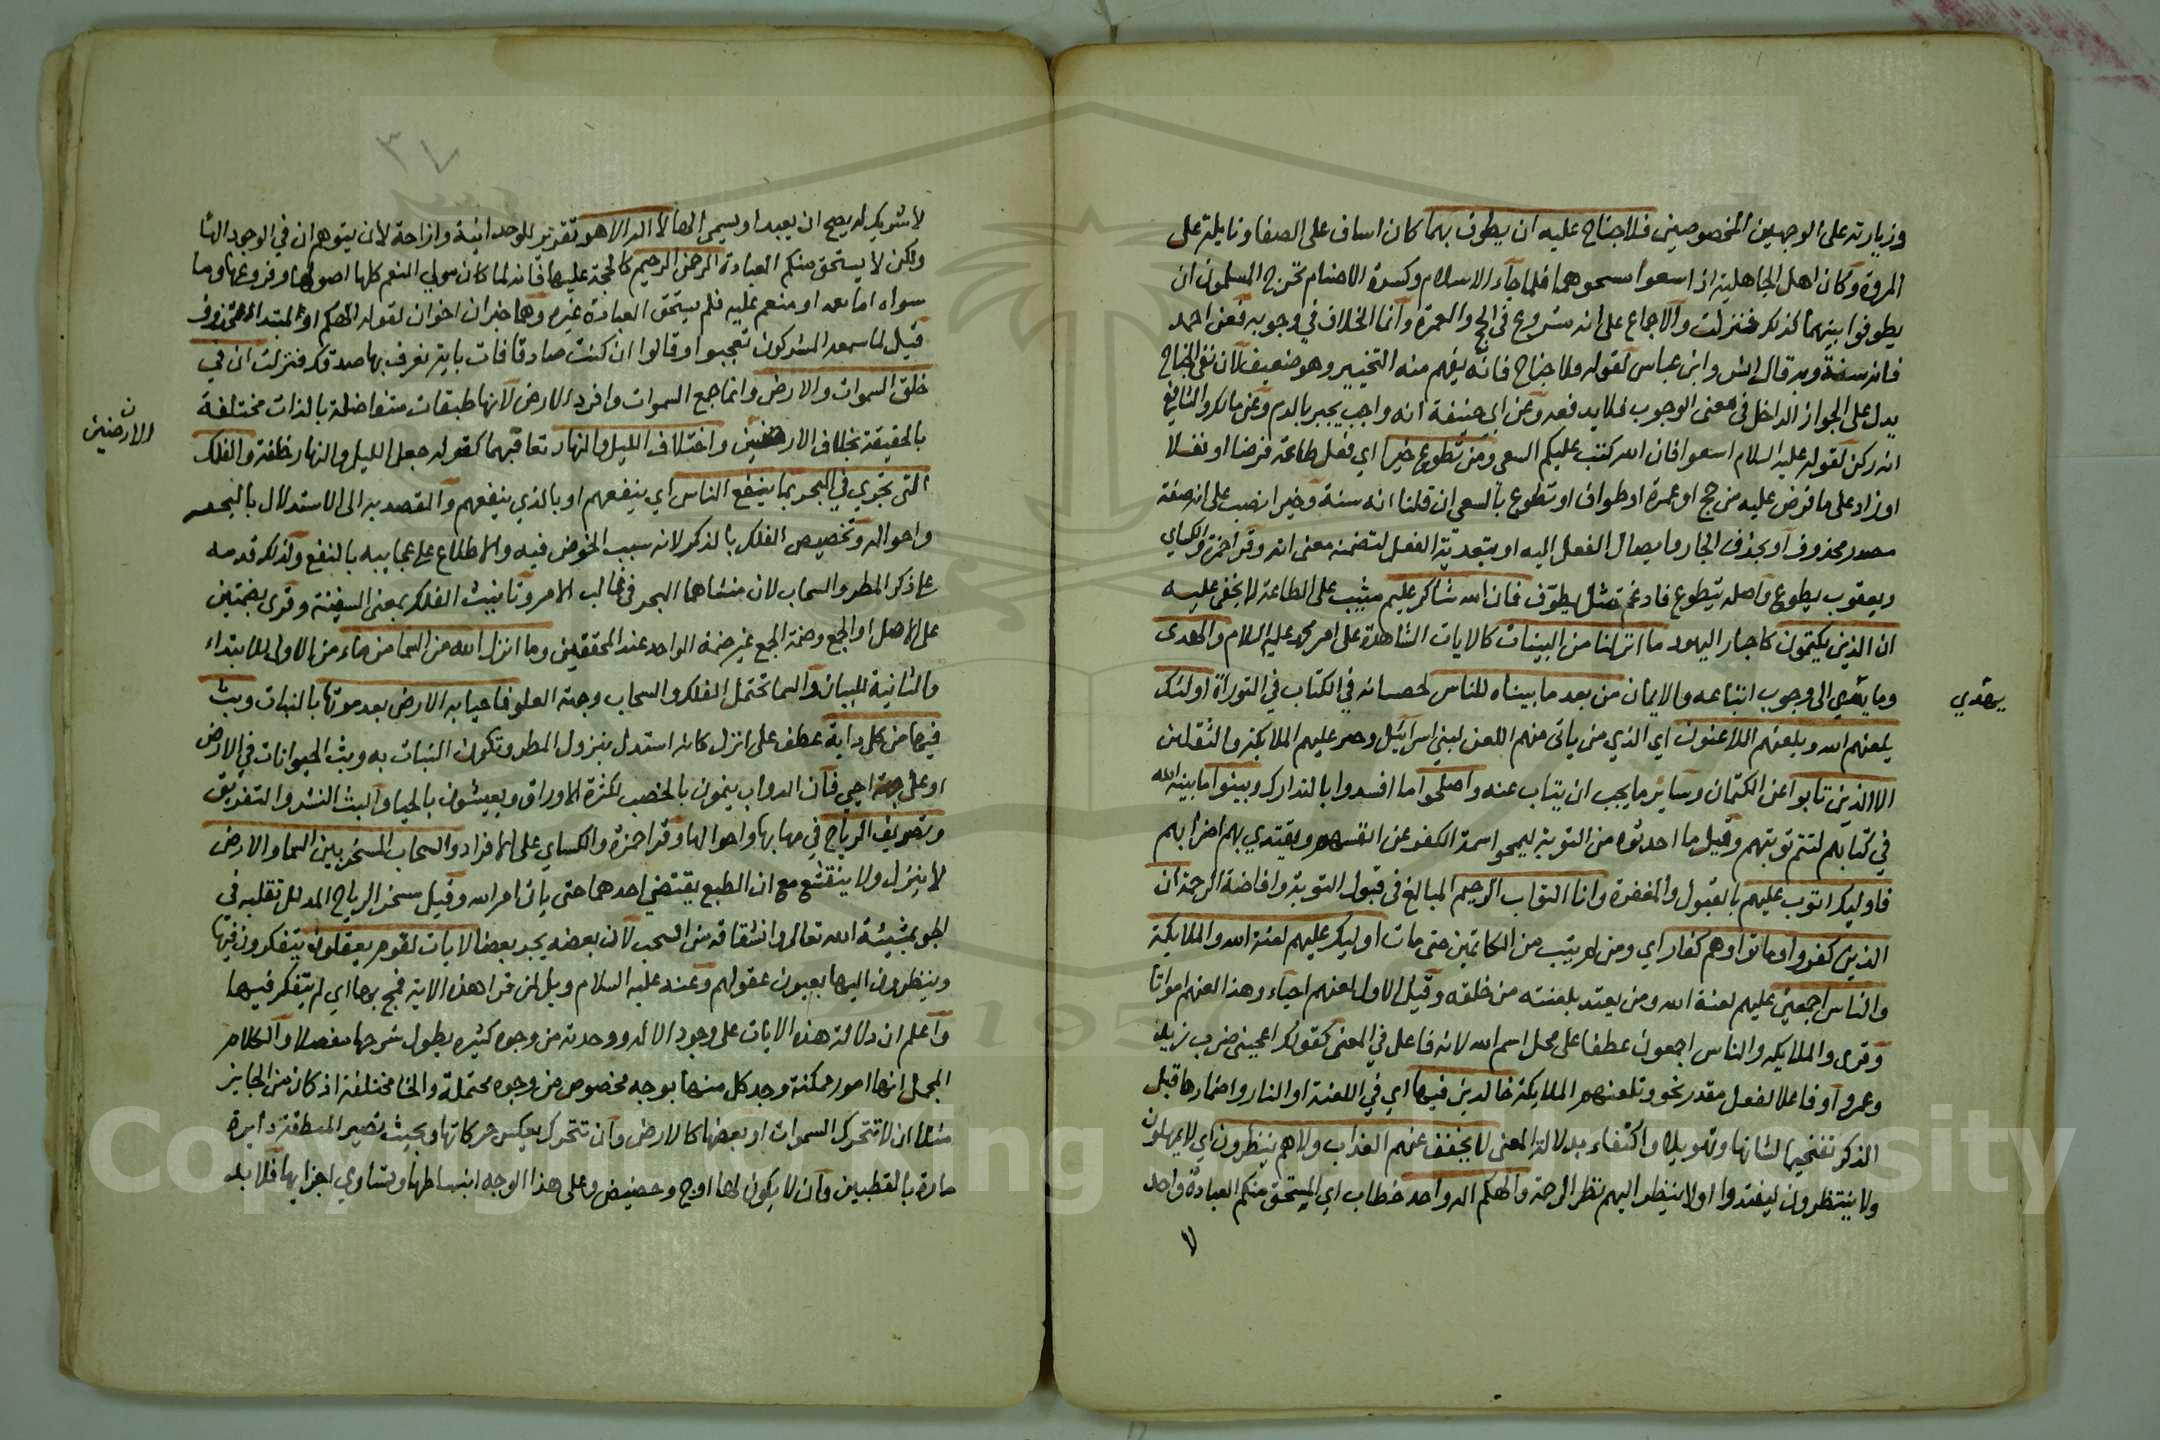 وزيارته على الوجهين المخصوصين فلا جناح عليه ان يطوف بهما كان اساف على الصفا ونايلة على
المروة وكان اهل الجاهلية اذا سعوا مسحوهما فلما جاء الاسلام وكسرة الاصنام تحرج المسلمون ان
يطوفوا بينهما لذلك فنزلت والاجماع على انه مشروع في الحج والعمرة وانما الخلاف في وجوبه فعن احمد
فانه سنة وبه قال انس وابن عباس لقوله فلا جناح فانه يفهم منه التخيير وهو ضعيف لان نفي الجناح
يدل على الجواز الداخل في معنى الوجوب فلا يدفعه وعن ابى حنيفة انه واجب يجبر بالدم وعن مالك والشافعي
انه ركن لقوله عليه السلام اسعوا فان الله كتب عليكم السعى ومن تطوع خيرا اي فعل طاعة فرضا او نفلا
او زاد على ما فرض عليه من حج او عمرة او طواف او تطوع بالسعى ان قلنا انه سنة وخيرا نصب على انه صفة
مصدر محذوف او بحذف الجار وايصال الفعل اليه او بتعدية الفعل لتضمنه معنى اتى وقرا حمزة والكساي
ويعقوب يطوع واصله يتطوع فادغم مثل يطوف فان الله شاكر عليم مثيب على الطاعة لا يخفى عليه
ان الذين يكتمون كاحبار اليهود ما انزلنا من البينات كالايات الشاهدة على امر محمد عليه السلام والهدى
وما يهدي الى وجوب اتباعه والايمان من بعد ما بيناه للناس لخصناه في الكتاب في التوراة اولئك
يهدي
يلعنهم الله ويلعنهم اللاعنون اي الذي من ياتى منهم اللعن لبني اسرائيل وحر عليهم الملايكة والثقلين
الا الذين تابوا عن الكتمان وسائر ما يجب ان يتاب عنه واصلحوا ما افسدوا بالتدارك وبينوا ما بينه الله
في كتابهم لتتم توبتهم وقيل ما احدثوه من التوبة ليمحوا سمة الكفر عن انفسهم ويقتدي بهم اضرابهم
فاوليك اتوب عليهم بالقبول والمغفرة وانا التواب الرحيم المبالغ في قبول التوبة وافاضة الرحمة ان
الذين كفروا وماتوا وهم كفار اي ومن لم يتب من الكاتمين حتى مات اوليك عليهم لعنة الله والملايكة
والناس اجمعين عليهم لعنة الله ومن يعتد بلعنته من خلقه وقيل الاول لعنهم احياء وهذا لعنهم امواتا
وقرى والملايكة والناس اجمعون عطفا على محل اسم الله لانه فاعل في المعنى كقولك اعجبنى ضرب زيد
وعمرو او فاعلا لفعل مقدر نحو وتلعنهم الملايكة خالدين فيها اي في اللعنة او النار واضمارها قبل
الذكر تفخيما لشانها وتهويلا واكتفاء بدلالة المعنى لا يخفف عنهم العذاب ولا هم ينظرون اي لا يمهلون
ولا ينتظرون ليعتذروا او لا ينظر اليهم نظر الرحمة والهكم اله واحد خطاب اي المستحق منكم العبادة واحد
لا
٣٧
لا شريك له يصح ان يعبد او يسمى الها لا اله الا هو تقرير للوحدانية وازاحة لان يتوهم ان في الوجود الها
ولكن لا يستحق منكم العبادة الرحمن الرحيم كالحجة عليها فانه لما كان مولى النعم كلها اصولها وفروعها وما
سواه اما نعمة او منعم عليه فلم يستحق العبادة غيره وهما خبران اخران لقوله الهكم او المبتدا محذوف
قيل لما سمعه المشركون تعجبوا وقالوا ان كنت صادقا فات باية نعرف بها صدقك فنزلت ان في
خلق السموات والارض وانما جمع السموات وافرد الارض لانها طبقات متفاضلة بالذات مختلفة
بالحقيقة بخلاف الارضين واختلاف الليل والنهار تعاقبهما كقوله جعل الليل والنهار خلفة والفلك
الارضين
التي تجري في البحر بما ينفع الناس اي ينفعهم او بالذي ينفعهم والمقصد به الى الاستدلال بالبحر
واحواله وتخصيص الفلك بالذكر لانه سبب الخوض فيه والاطلاع على عجايبه بالنفع ولذلك قدمه
على ذكر المطر والسحاب لان منشاهما البحر في غالب الامر وتانيث الفلك بمعنى السفينة وقرى بضمتين
على الاصل او الجمع وضمة الجمع غير ضمة الواحد عند المحققين وما انزل الله من السما من ماء من الاولى للابتداء
والثانية للبيان والسما تحتمل الفلك والسحاب وجهة العلو فاحيا به الارض بعد موتها بالنبات وبث
فيها من كل دابة عطف على انزل كانه استدل بنزول المطر وتكون النبات به وبث الحيوانات في الارض
او على احيى فان الدواب ينمون بالخصب لكثرة الاوراق ويعيشون بالحيا والبث النشر والتفريق
وتصريف الرياح في مهابها واحوالها وقرا حمزة والكساي على الافراد والسحاب المسخر بين السما والارض
لا ينزل ولا ينقشع مع ان الطبع يقتضي احدهما حتى ياتى امر الله وقيل سخر الرياح المدلل تقلبه في
الجو بمشيئة الله تعالى وانشقاقه من السحب لان بعضه يجر بعضا لايات لقوم يعقلون يتفكرون فيها
وينظرون اليها بعيون عقولهم وعنه عليه السلام ويل لمن قرا هذه الاية فمج بها اي لم يتفكر فيها
واعلم ان دلالة هذه الايات على وجود الاله ووحدته من وجوه كثيره يطول شرحها مفصلا والكلام
المجمل انها امور ممكنة وجد كل منها بوجه مخصوص من وجوه محتملة وانحا مختلفة اذ كان من الجايز
مثلا ان لا تتحرك السموات او بعضها كالارض وان تتحرك بعكس حركاتها وبحيث تصير المنطقة دايرة
مارة بالقطبين وان لا يكون لها اوج وحضيض وعلى هذا الوجه انبساطها وتساوي اجزايها فلا بد
Copyright © King Saud University
1957